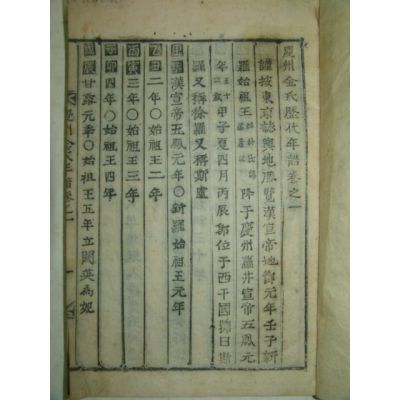 慶州金氏歷代年譜卷之一
謹按東京誌輿地勝覽漢宣帝地節元年壬子新
羅始祖王降于慶州蘿井宣帝五鳳元
年王十三歲甲子夏四月丙辰卽位于西干國號曰斯
羅又稱徐羅又稱斯盧
甲子漢宣帝五鳳元年〇新羅始祖王元年
乙丑二年〇始祖王二年
丙寅三年〇始祖王三年
丁卯四年〇始祖王四年
戊辰甘露元年〇始祖王五年立閼英為妃
金氏年譜卷之一
一